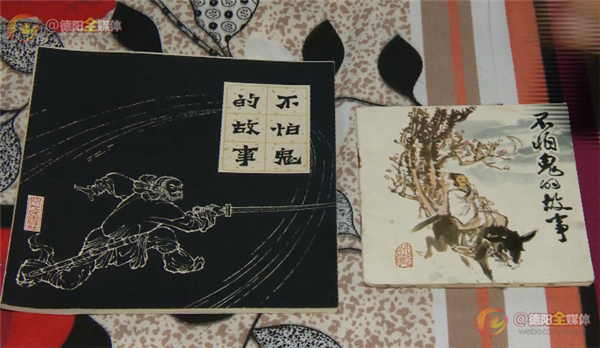 @德阳全媒体
不怕鬼
的故事
不怕鬼的故事
@德阳全媒体
weibo.com/